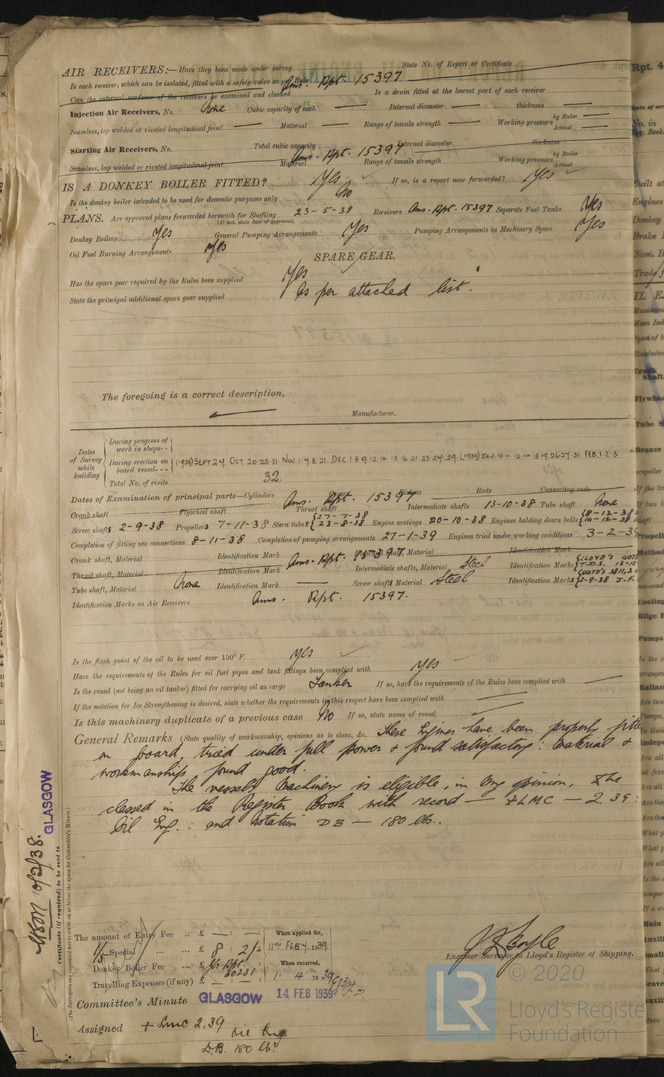 AIR RECEIVERS:—Have they been made under survey State No. of Report or Certificate
Is each receiver, which can be isolated, fitted with a safety valve as per Rule Ams. Rpt. 15397
Can the internal surfaces of the receivers be examined and cleaned Is a drain fitted at the lowest part of each receiver
Injection Air Receivers, No. None Cubic capacity of each — Internal diameter — thickness —
Seamless, lap welded or riveted longitudinal joint — Material — Range of tensile strength — Working pressure by Rules — Actual —
Starting Air Receivers, No. Total cubic capacity Ams. Rpt. 15397 Internal diameter thickness
Seamless, lap welded or riveted longitudinal joint Material Range of tensile strength Working pressure by Rules Actual
IS A DONKEY BOILER FITTED? Yes If so, is a report now forwarded? Yes
Is the donkey boiler intended to be used for domestic purposes only No
PLANS. Are approved plans forwarded herewith for Shafting 23-5-38 Receivers Ams. Rpt. 15397 Separate Fuel Tanks Yes
(If not, state date of approval)
Donkey Boilers Yes General Pumping Arrangements Yes Pumping Arrangements in Machinery Space Yes
Oil Fuel Burning Arrangements Yes
SPARE GEAR.
Has the spare gear required by the Rules been supplied Yes
State the principal additional spare gear supplied As per attached list.
The foregoing is a correct description,
Manufacturer.
Dates of Survey while building
During progress of work in shops - -
During erection on board vessel - - - (1938) SEPT 24, OCT 20.25.31. NOV 1.4.8.21. DEC 1.8.9.12.14.15.16.21.23.24.29. (1939) JAN.10.11.12.14.18.19.26.27.31 FEB.1.2.3
Total No. of visits 32.
Dates of Examination of principal parts—Cylinders Ams. Rpt. 15397 Rods Connecting rods
Crank shaft Flywheel shaft Thrust shaft Intermediate shafts 13-10-38 Tube shaft None
Screw shafts 2-9-38 Propellers 7-11-38 Stern tubes 27-7-38 23-8-38 Engine seatings 20-10-38 Engines holding down bolts 8-12-38 14-12-38
Completion of fitting sea connections 8-11-38 Completion of pumping arrangements 27-1-39 Engines tried under working conditions 3-2-39
Crank shaft, Material Identification Mark Ams. Rpt. 15397. Material Identification Mark
Thrust shaft, Material Identification Mark Intermediate shafts, Material Steel Identification Marks LLOYD'S
Tube shaft, Material None Identification Mark — Screw shafts, Material Steel Identification Marks 2-9-38
Identification Marks on Air Receivers Ams. Rpt. 15397.
Is the flash point of the oil to be used over 150° F. Yes
Have the requirements of the Rules for oil fuel pipes and tank fittings been complied with Yes
Is the vessel (not being an oil tanker) fitted for carrying oil as cargo Tanker If so, have the requirements of the Rules been complied with —
If the notation for Ice Strengthening is desired, state whether the requirements in this respect have been complied with —
Is this machinery duplicate of a previous case No If so, state name of vessel
General Remarks (State quality of workmanship, opinions as to class, &c. These Engines have been properly fitted
on board, tried under full power & found satisfactory: material &
workmanship found good.
The vessel's machinery is eligible, in my opinion, to be
classed in the Register Book with record — + LMC — 2.39:
Oil Eng.: and notation DB — 180 lbs.
The amount of Entry Fee .. £ : :
Special £ 8 : 2/-
Donkey Boiler Fee £
Travelling Expenses (if any) £ : :
When applied for,
11TH FEBY 1939
When received,
1. 4. 1939
Engineer Surveyor to Lloyd's Register of Shipping.
Committee's Minute GLASGOW 14 FEB 1939
Assigned + LMC 2.39
Oil Eng
D.B. 180 lb.
GLASGOW
Certificate (if required) to be sent to
(The Surveyors are requested not to write on or below the space for Committee's Minute.)
© 2020
LR
Lloyd's Register
Foundation
Rpt. 4